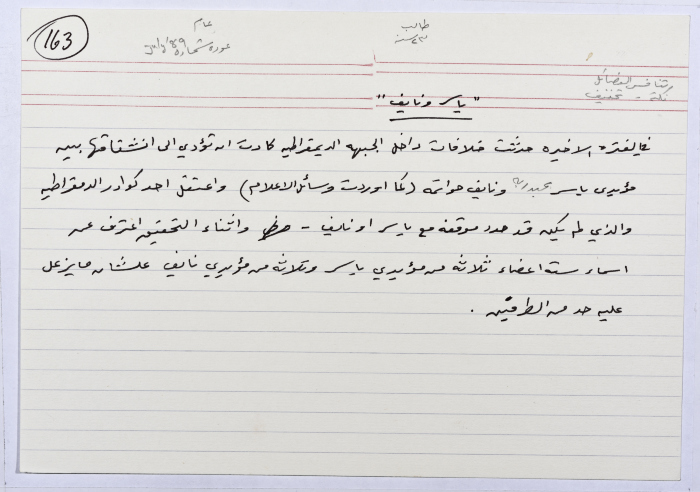 163
عام
طالب
٢٣ سنة
تنافس الفصائل
نكتة - تخفيف
"ياسر ونايف"
في الفتره الاخيره حدثت خلافات داخل الجبهه الديمقراطيه كادت ان تؤدي الى انشقاقها بين
مؤيدي ياسر عبدربه ونايف حواتمه (كما اوردت وسائل الاعلام) واعتقل احد كوادر الدمقراطيه
والذي لم يكن قد حدد موقفه مع ياسر او نايف - واثناء التحقيق اعترف عن
اسماء سته اعضاء ثلاثه من مؤيدي ياسر وثلاثه من مؤيدي نايف علشان ما يزعل
عليه حد من الطرفين .